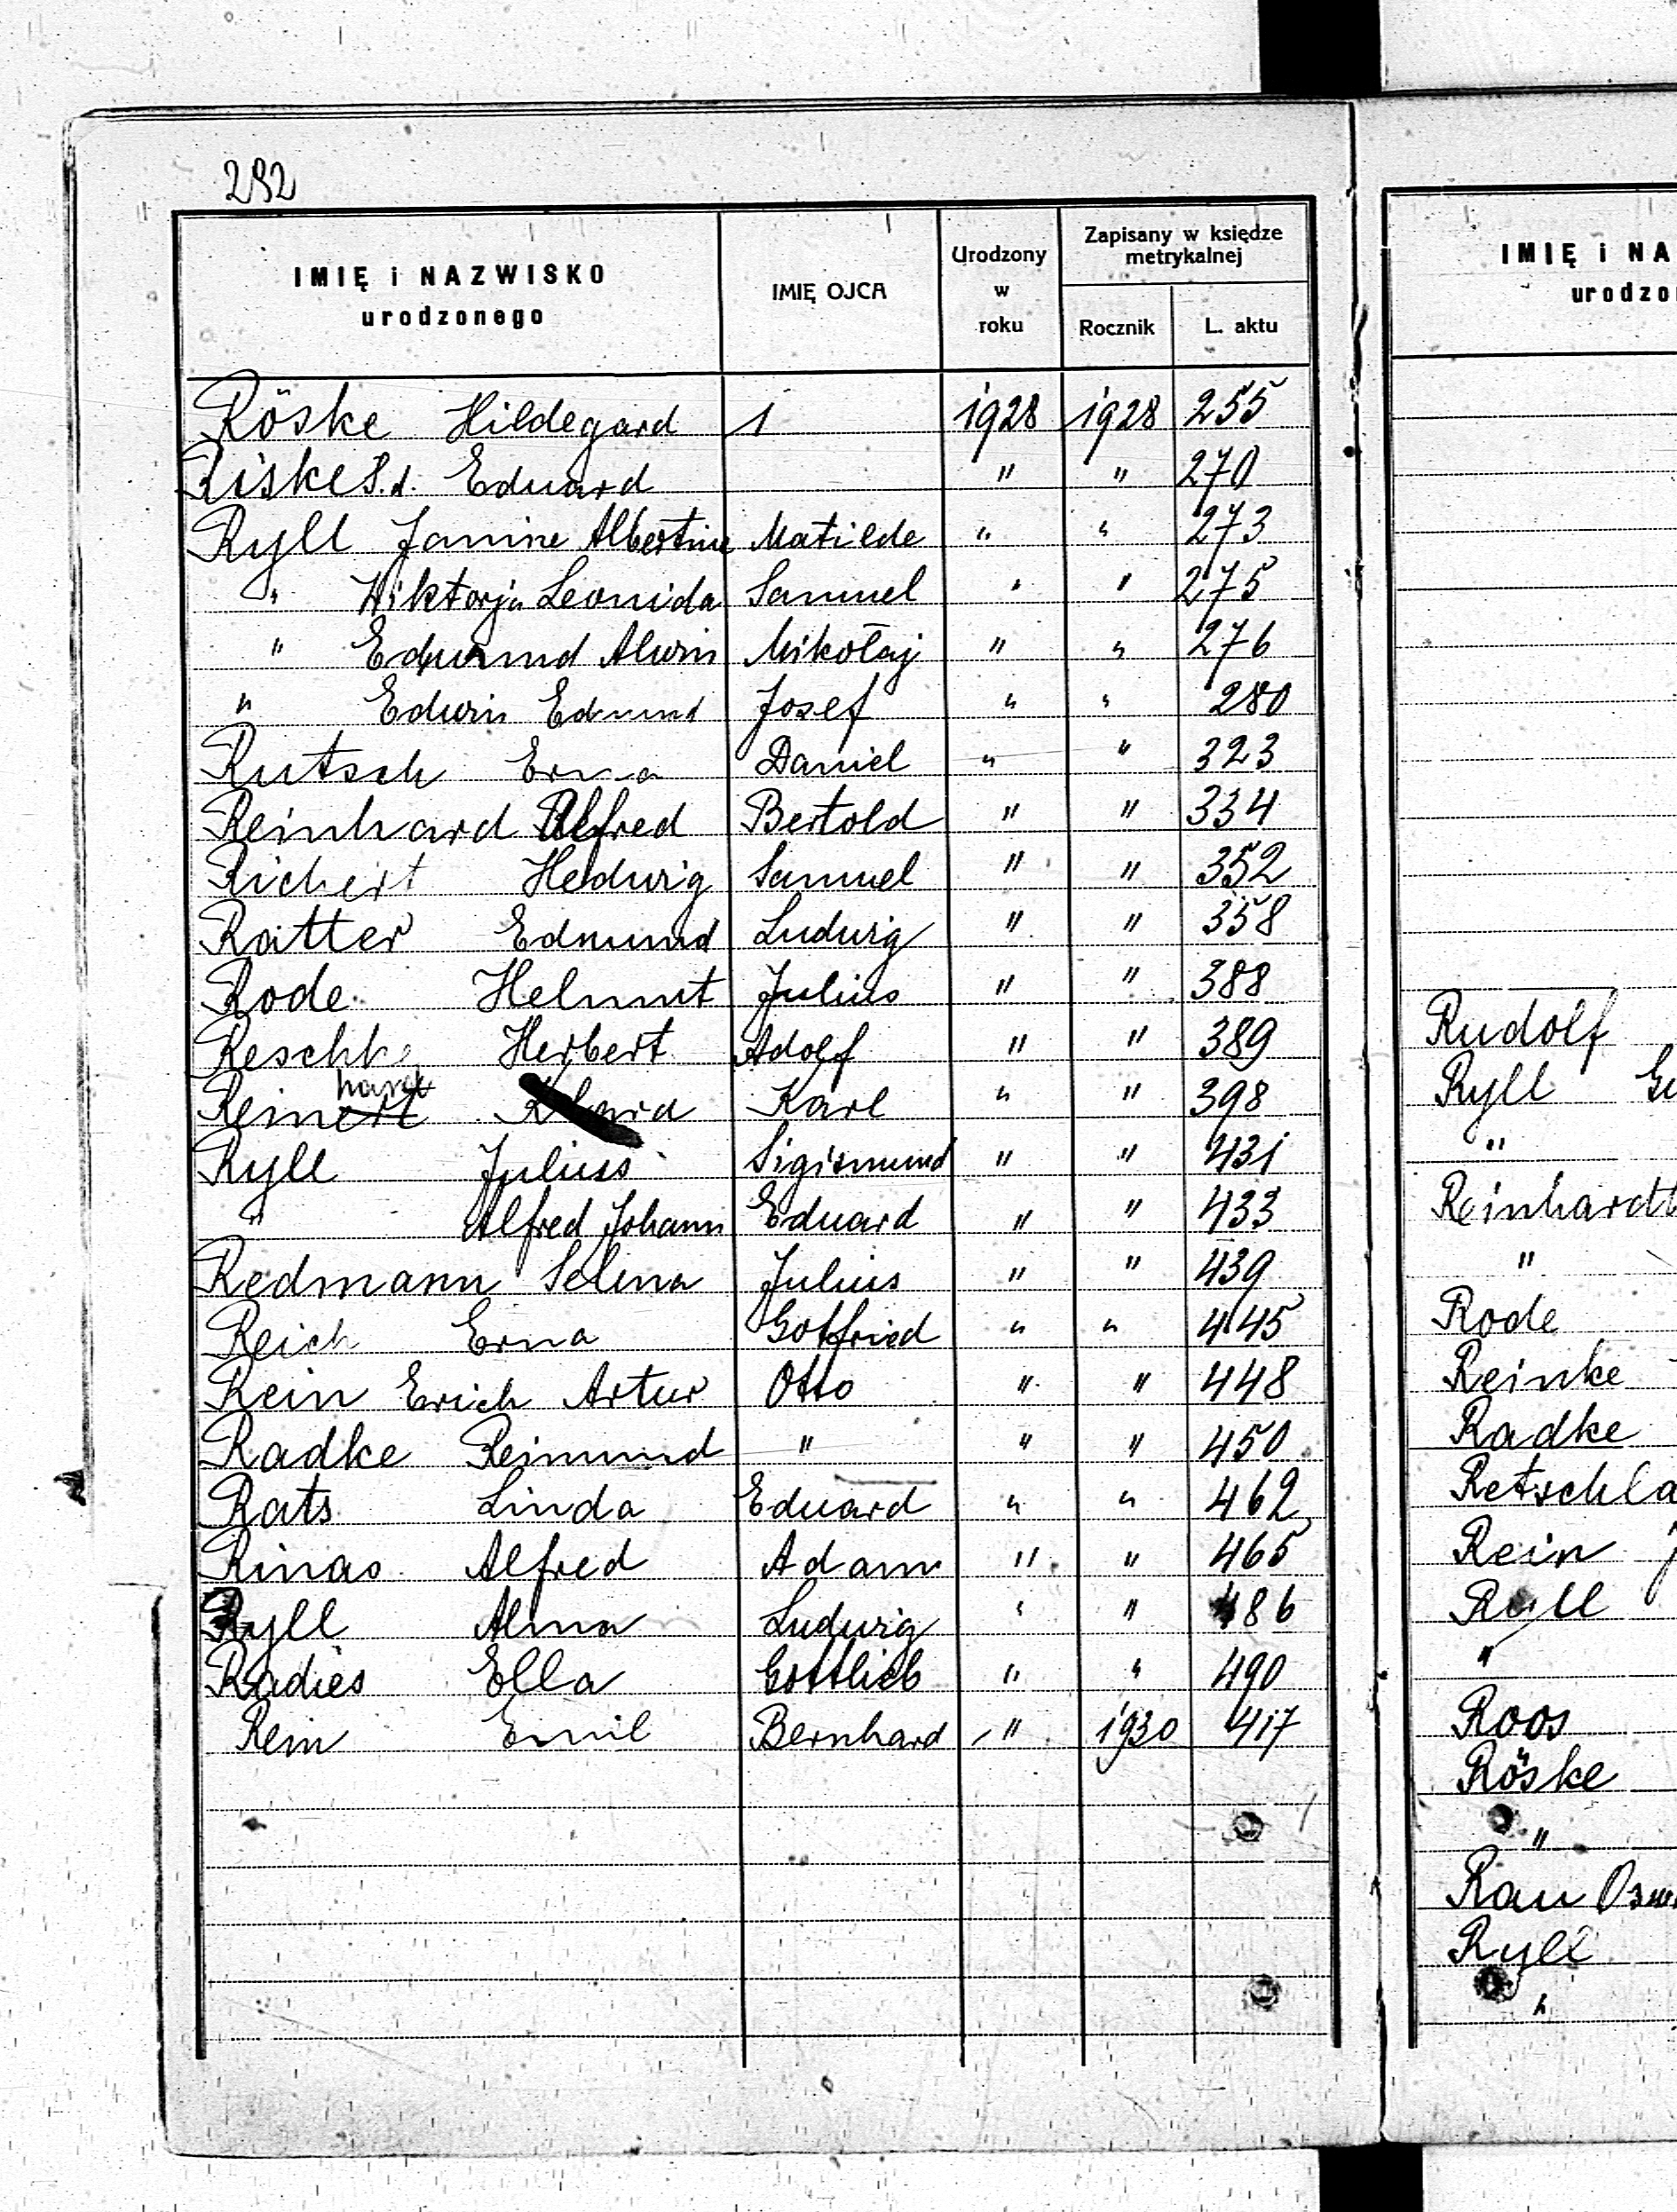 292
IMIĘ i NAZWISKO urodzonego | IMIĘ OJCA | Urodzony w roku | Zapisany w księdze metrykalnej | Rocznik | L. aktu
Röske Hildegard 1 1928 1928 255
Riske S.d. Eduard " " 270
Ryll Janine Albertine Matilde " " 273
" Wiktorja Leonida Samuel " " 275
" Edmund Alwin Mikołaj " " 276
" Edwin Edmund Josef " " 280
Rutsch Erna Daniel " " 323
Reinhard Alfred Bertold " " 334
Richert Hedwig Samuel " " 352
Ratter Edmund Ludwig " " 358
Rode Helmut Julius " " 388
Reschke Herbert Adolf " " 389
Reinert hardt Karl " " 398
Ryll Julius Sigismund " " 431
" Alfred Johann Eduard " " 433
Redmann Selma Julius " " 439
Reich Erna Gotfried " " 445
Rein Erich Artur Otto " " 448
Radke Reimund " " " 450
Rats Linda Eduard " " 462
Rinas Alfred Adam " " 465
Ryll Alma Ludwig " " 486
Radies Ella Gottlieb " " 490
Rein Emil Bernhard " 1930 417
IMIĘ i NA
urodzo
Rudolf
Ryll
"
Reinhardt
"
Rode
Reinke
Radke
Retschla
Rein
Ryll
"
Roos
Röske
"
Rau
Ryll
"